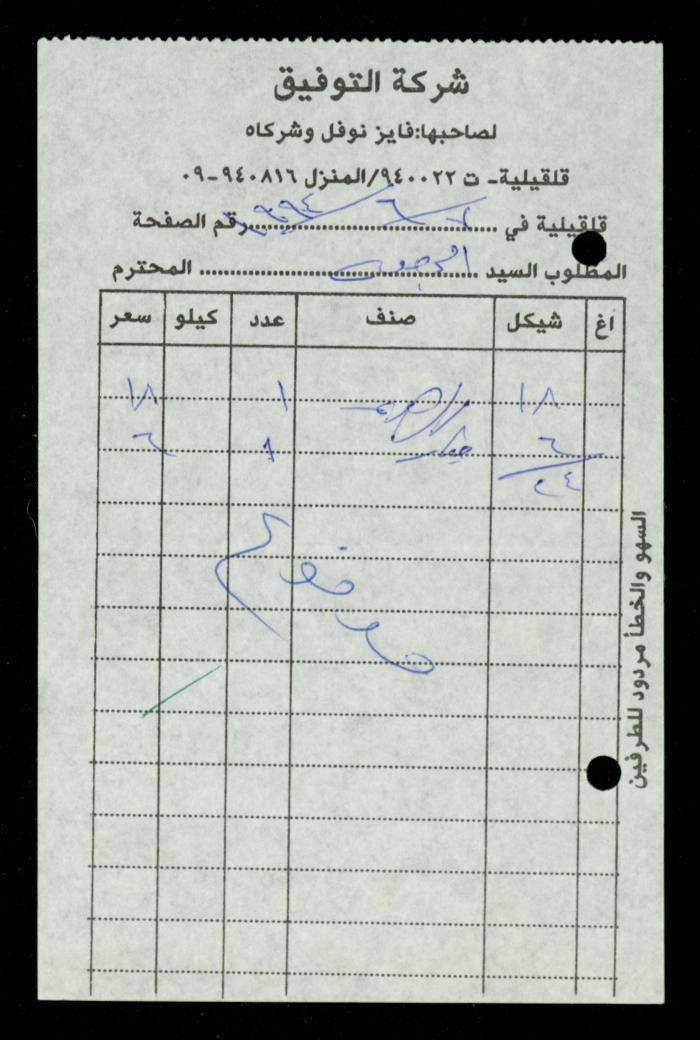 شركة التوفيق
لصاحبها:فايز نوفل وشركاه
قلقيلية- ت ٩٤٠٠٢٢/المنزل ٩٤٠٨١٦-٠٩
قلقيلية في ١٩٩٤/٦/ رقم الصفحة
المطلوب السيد المحترم
اغ شيكل صنف عدد كيلو سعر
١٨ ١ ١٨
٦ ١ ٦
٢٤
مدفوع
السهو والخطأ مردود للطرفين